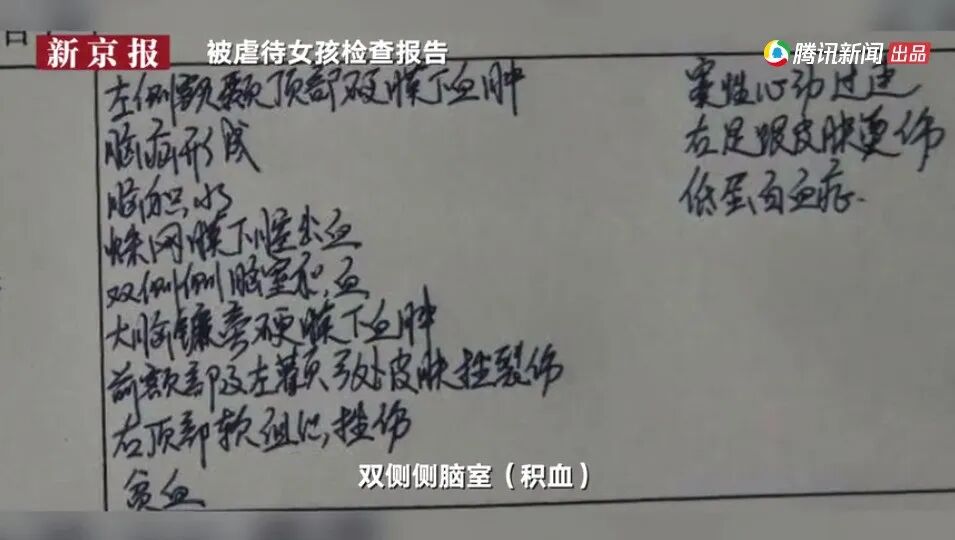 新京报
被虐待女孩检查报告
腾讯新闻 出品
左侧额颞顶部硬膜下血肿
脑疝形成
脑积水
蛛网膜下腔出血
双侧侧脑室积血
大脑镰旁硬膜下血肿
前额部及左颞部皮肤挫裂伤
右顶部软组织挫伤
贫血
窦性心动过速
右足跟皮肤烫伤
低蛋白血症.
双侧侧脑室（积血）